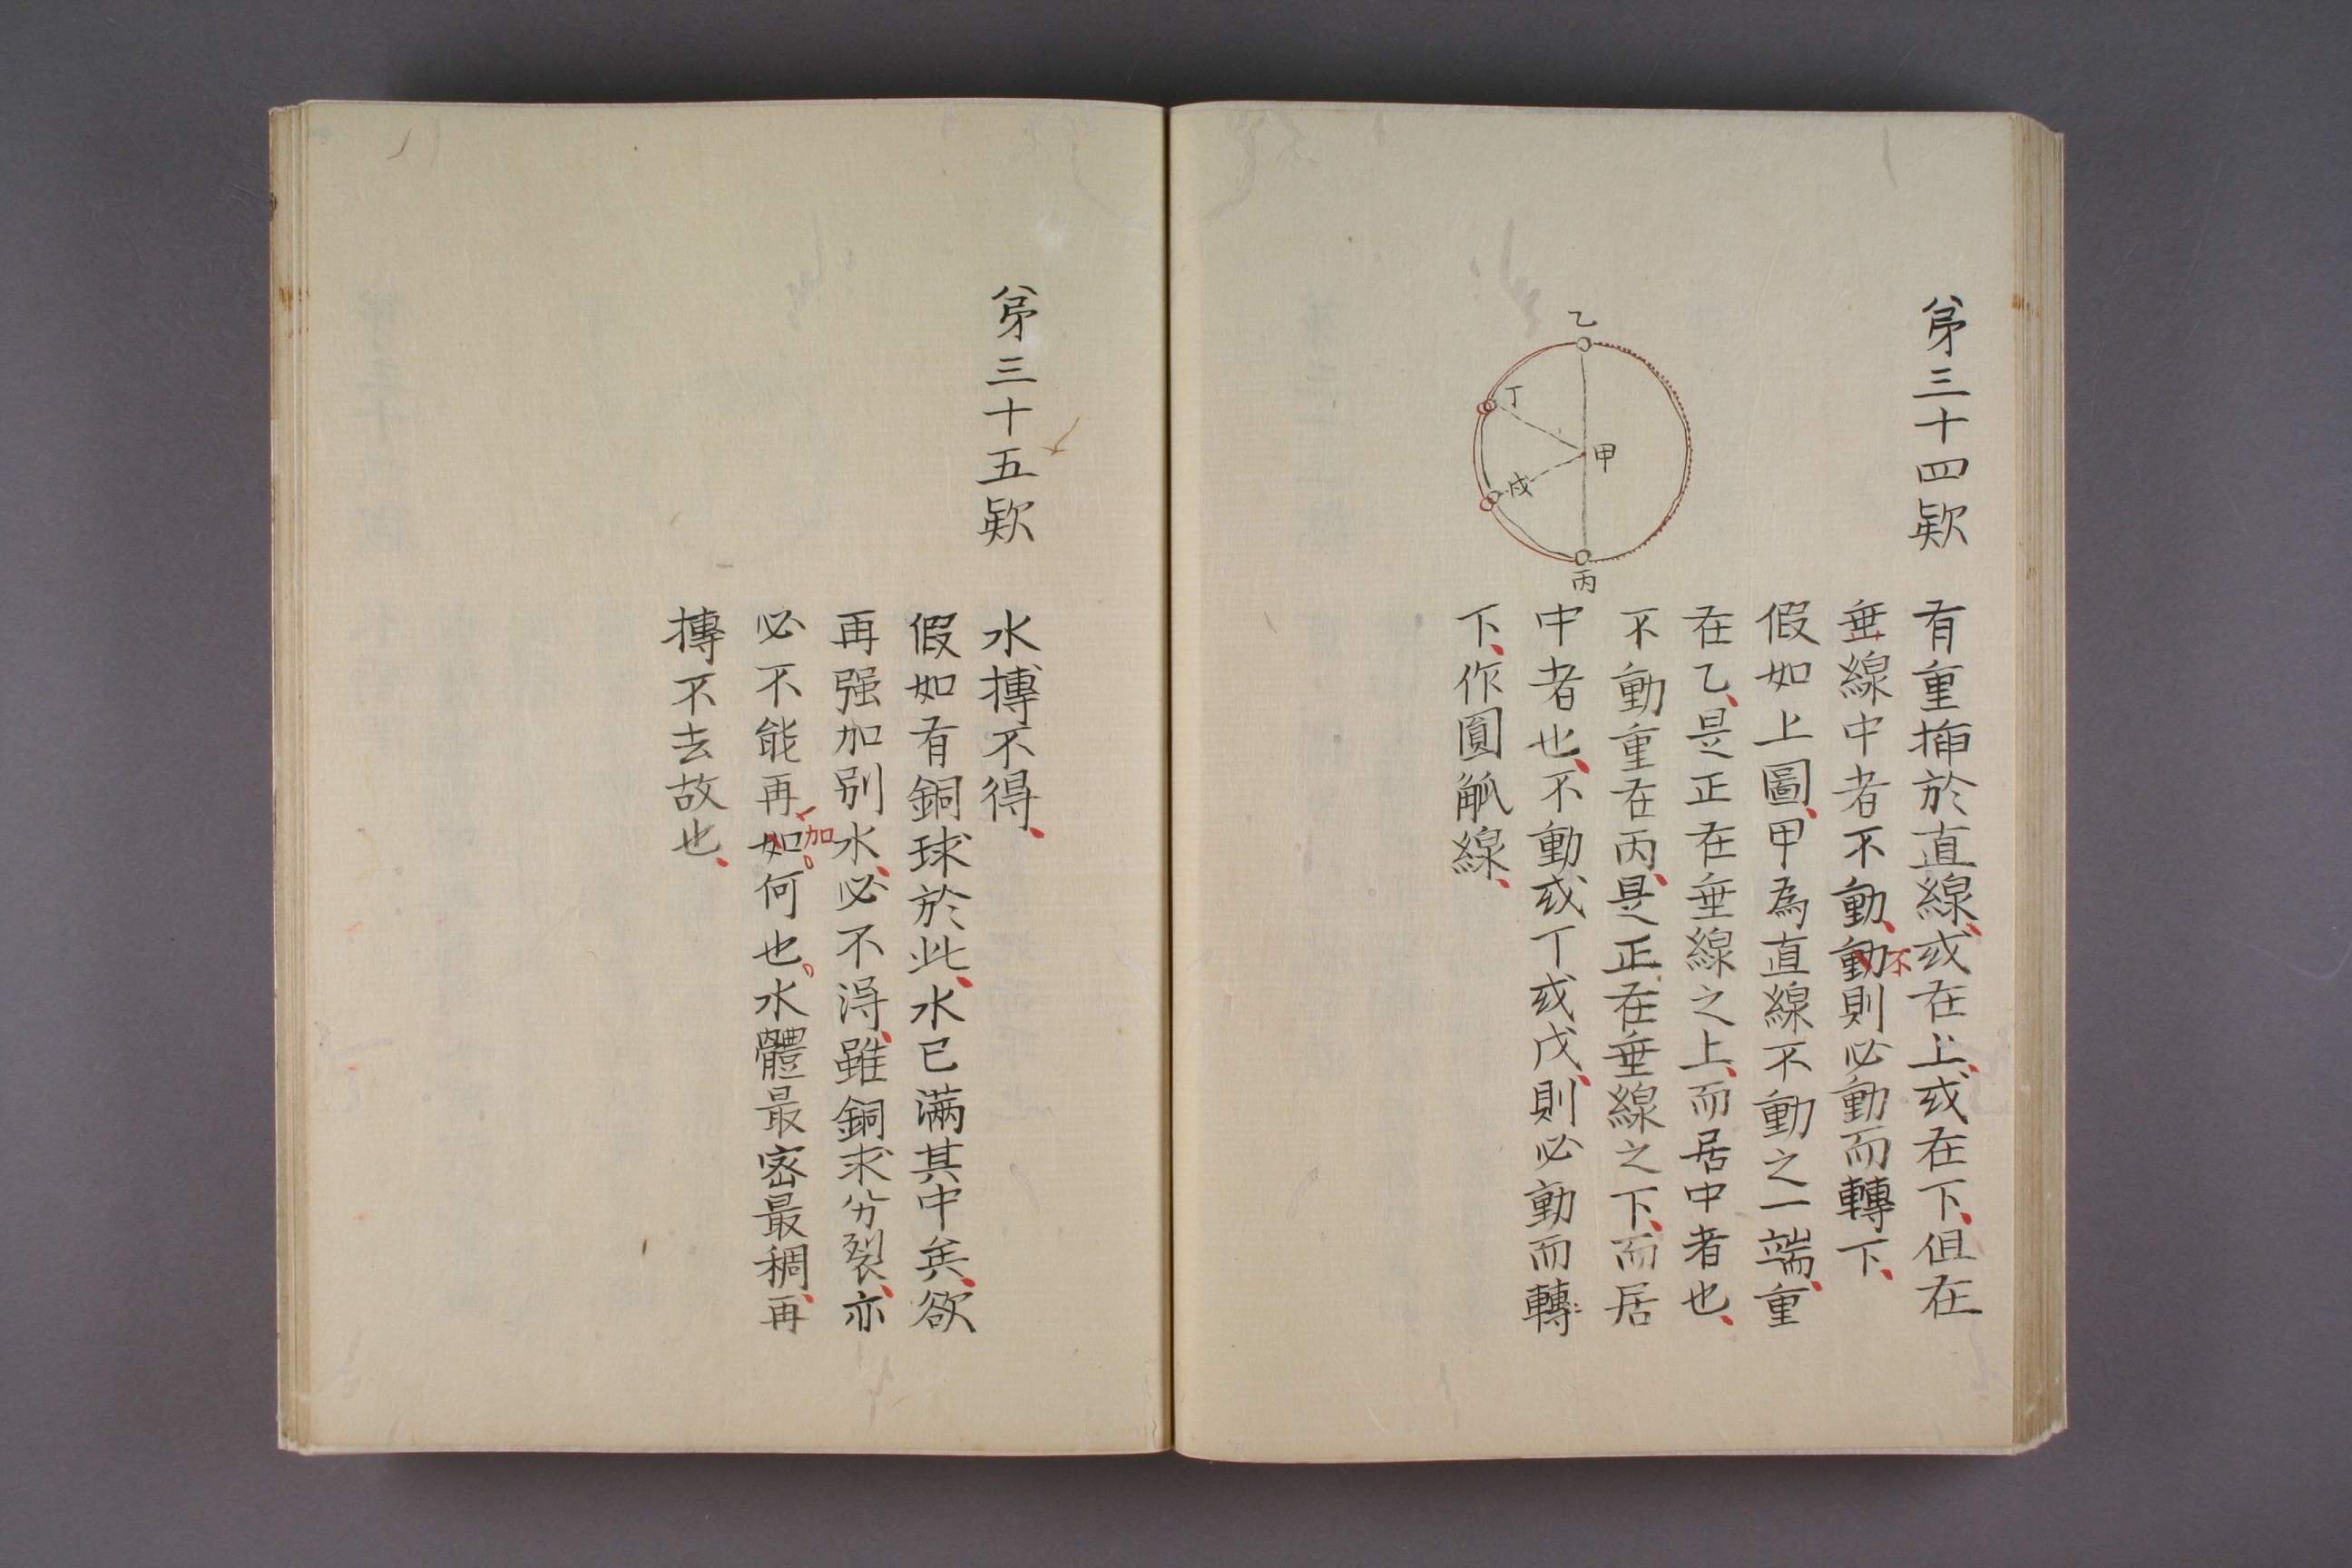 第三十四款
有重揷於直線、或在上、或在下、但在
垂線中者不動、動不則必動而轉下、
假如上圖、甲為直線不動之一端、重
在乙、是正在垂線之上、而居中者也、
不動重在丙、是正在垂線之下、而居
中者也、不動或丁或戊、則必動而轉
下、作圓觚線、
乙
丁
甲
戍
丙
第三十五款
水摶不得、
假如有銅球於此、水已滿其中矣、欲
再强加别水、必不得、雖銅求分裂、亦
必不能再如加。何也。水體最密最稠、再
摶不去故也、